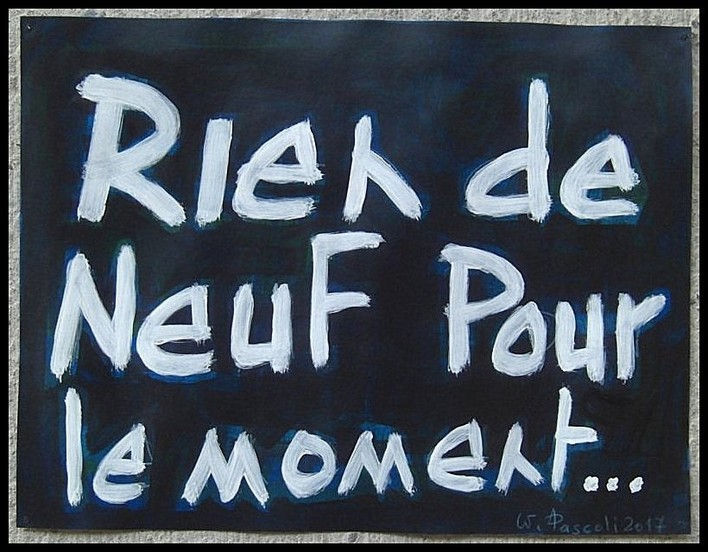 Rien de
Neuf Pour
le moment...
W. Pascoli 2017